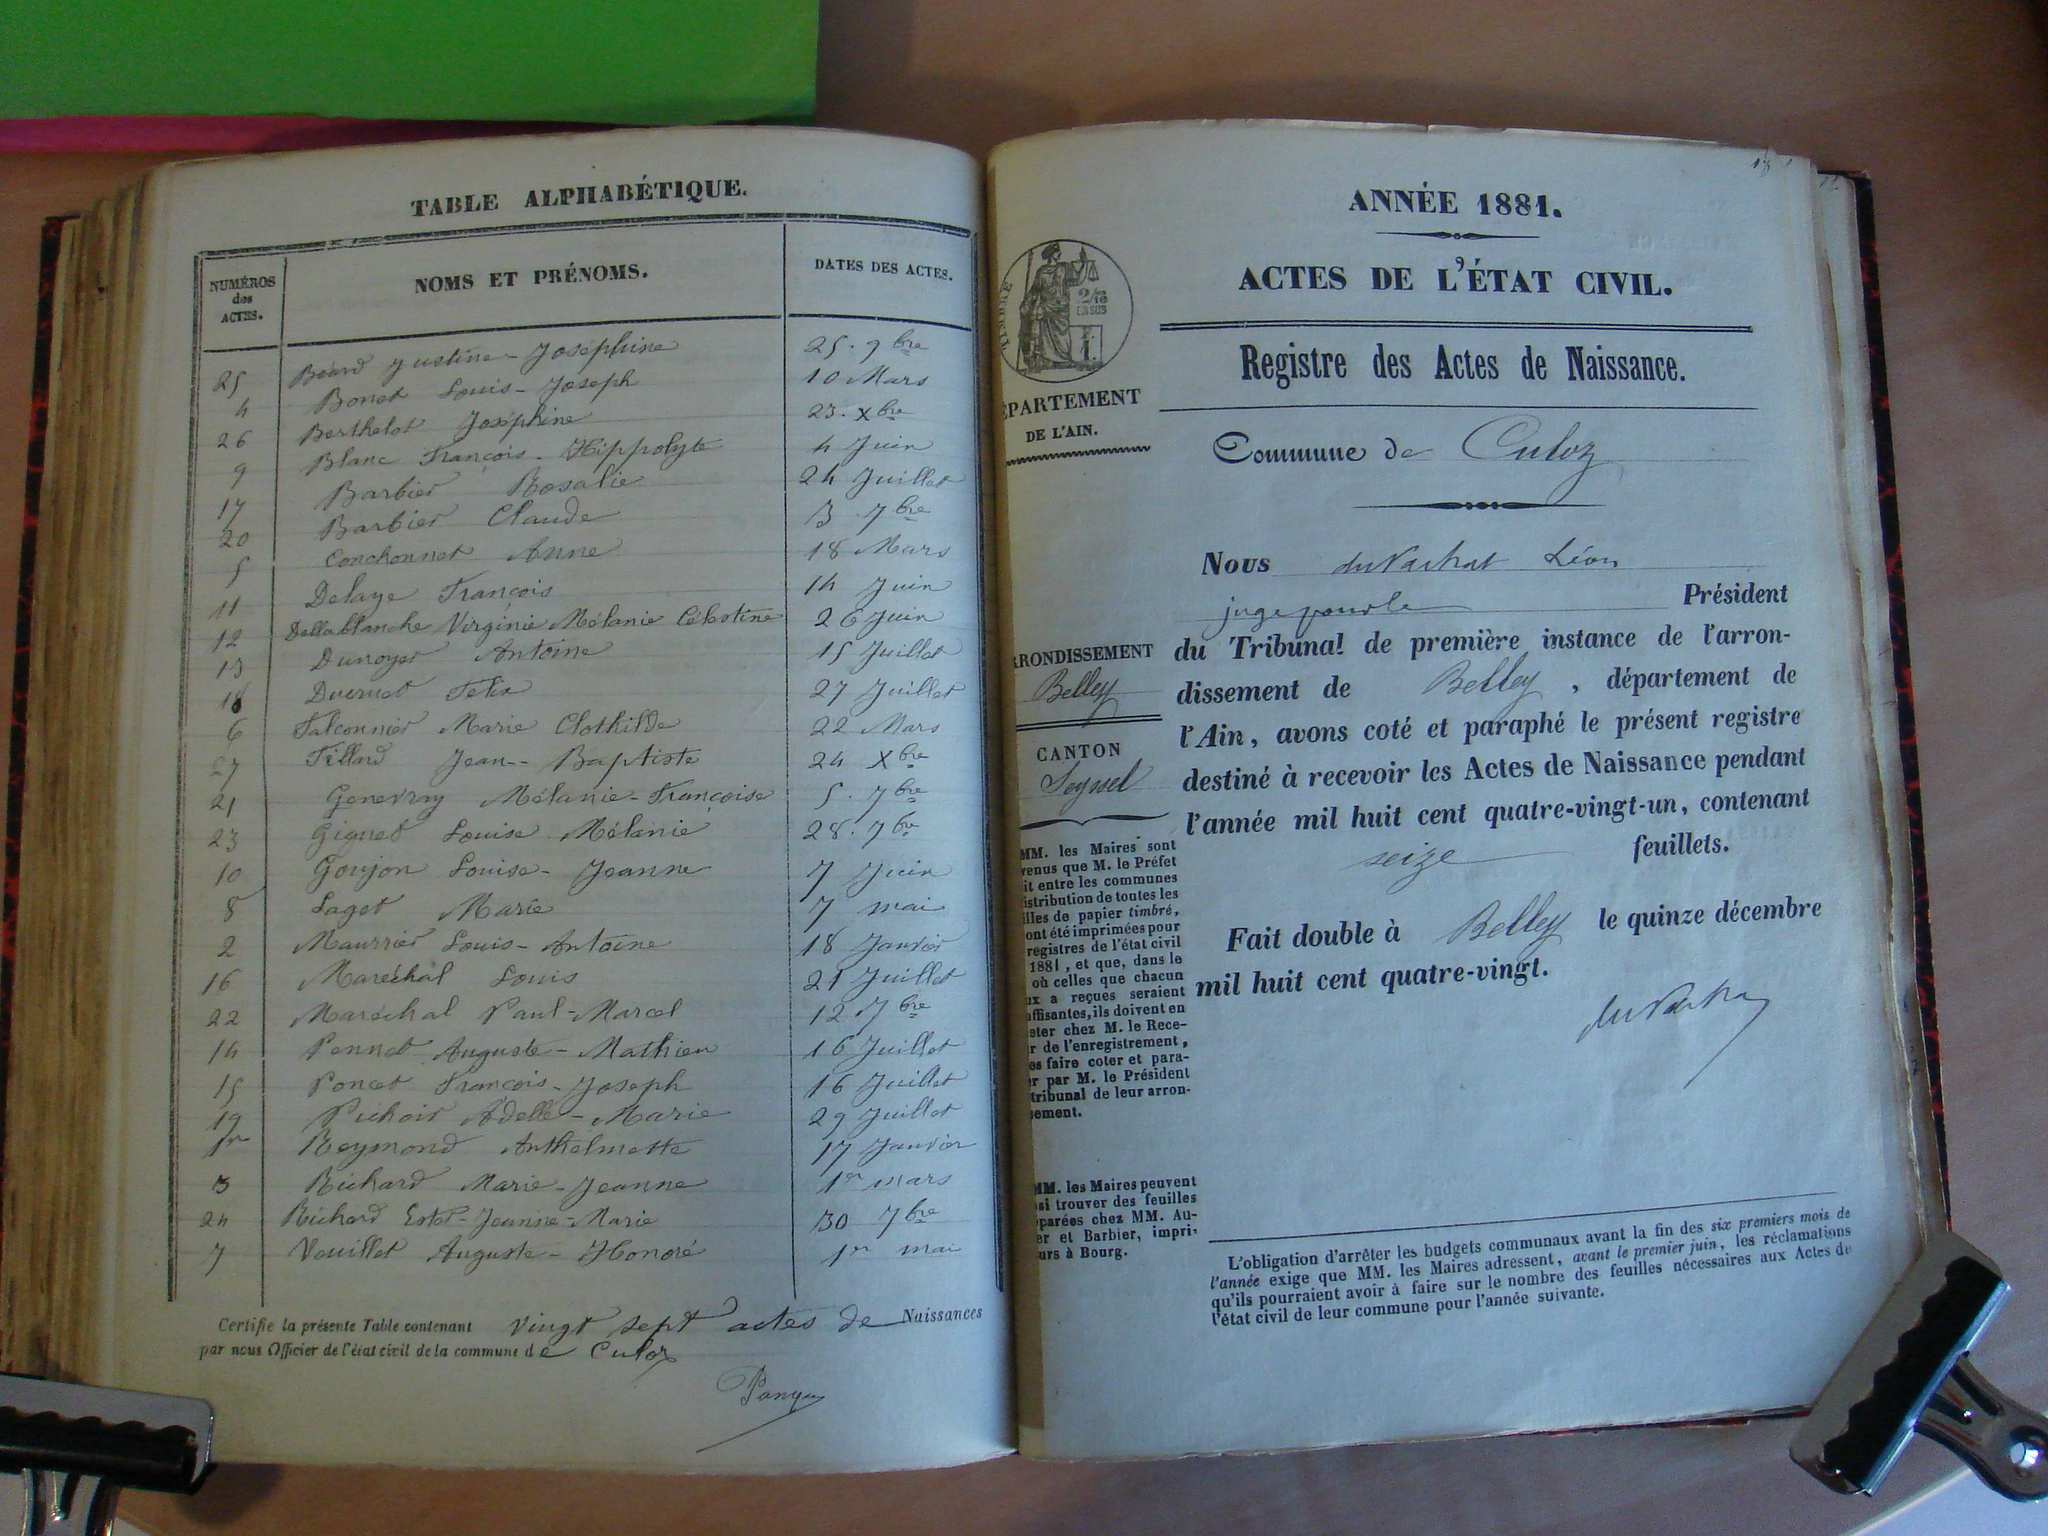 TABLE ALPHABÉTIQUE.
NUMÉROS des ACTES. NOMS ET PRÉNOMS. DATES DES ACTES.
25 Béard Justine-Joséphine 25. 9bre
4 Bonet Louis-Joseph 10 Mars
26 Berthelot Joséphine 23. Xbre
9 Blanc François-Hippolyte 4 Juin
17 Barbier Rosalie 24 Juillet
20 Barbier Claude 3 7bre
5 Conchonnet Anne 18 Mars
11 Delaye François 14 Juin
12 Dellablanche Virginie Mélanie Célestine 26 Juin
13 Dunoyer Antoine 15 Juillet
18 Duernet Felix 27 Juillet
6 Falconnier Marie Clothilde 22 Mars
27 Fillard Jean-Baptiste 24 Xbre
21 Genevray Mélanie-Françoise 5. 7bre
23 Giguet Louise Mélanie 28. 7bre
10 Goujon Louise-Jeanne 7 Juin
8 Laget Marie 7 mai
2 Maurrier Louis-Antoine 18 Janvier
16 Maréchal Louis 21 Juillet
22 Maréchal Paul-Marcel 12 7bre
14 Pennet Auguste-Mathieu 16 Juillet
15 Poncet François-Joseph 16 Juillet
19 Pichoir Adelle-Marie 29 Juillet
1er Reymond Anthelmette 17 Janvier
3 Richard Marie-Jeanne 1er mars
24 Richard Jeanne-Marie 30 7bre
7 Vouillet Auguste-Honoré 1er mai
Certifie la présente Table contenant vingt sept actes de Naissances
par nous Officier de l'état civil de la commune de Culoz
ANNÉE 1881.
ACTES DE L'ÉTAT CIVIL.
TIMBRE
2/10
EN SUS
Registre des Actes de Naissance.
ÉPARTEMENT
DE L'AIN.
Commune de Culoz
Nous du Vachat Léon
juge pour le Président
du Tribunal de première instance de l'arron-
dissement de Belley, département de
l'Ain, avons coté et paraphé le présent registre
destiné à recevoir les Actes de Naissance pendant
l'année mil huit cent quatre-vingt-un, contenant
seize feuillets.
Fait double à Belley le quinze décembre
mil huit cent quatre-vingt.
du Vachat
RRONDISSEMENT
Belley
CANTON
Seyssel
MM. les Maires sont
venus que M. le Préfet
it entre les communes
istribution de toutes les
illes de papier timbré,
ont été imprimées pour
registres de l'état civil
1881, et que, dans le
où celles que chacun
ux a reçues seraient
uffisantes, ils doivent en
eter chez M. le Rece-
r de l'enregistrement,
es faire coter et para-
r par M. le Président
tribunal de leur arron-
sement.
MM. les Maires peuvent
si trouver des feuilles
parées chez MM. Au-
er et Barbier, impri-
urs à Bourg.
L'obligation d'arrêter les budgets communaux avant la fin des six premiers mois de
l'année exige que MM. les Maires adressent, avant le premier juin, les réclamations
qu'ils pourraient avoir à faire sur le nombre des feuilles nécessaires aux Actes de
l'état civil de leur commune pour l'année suivante.